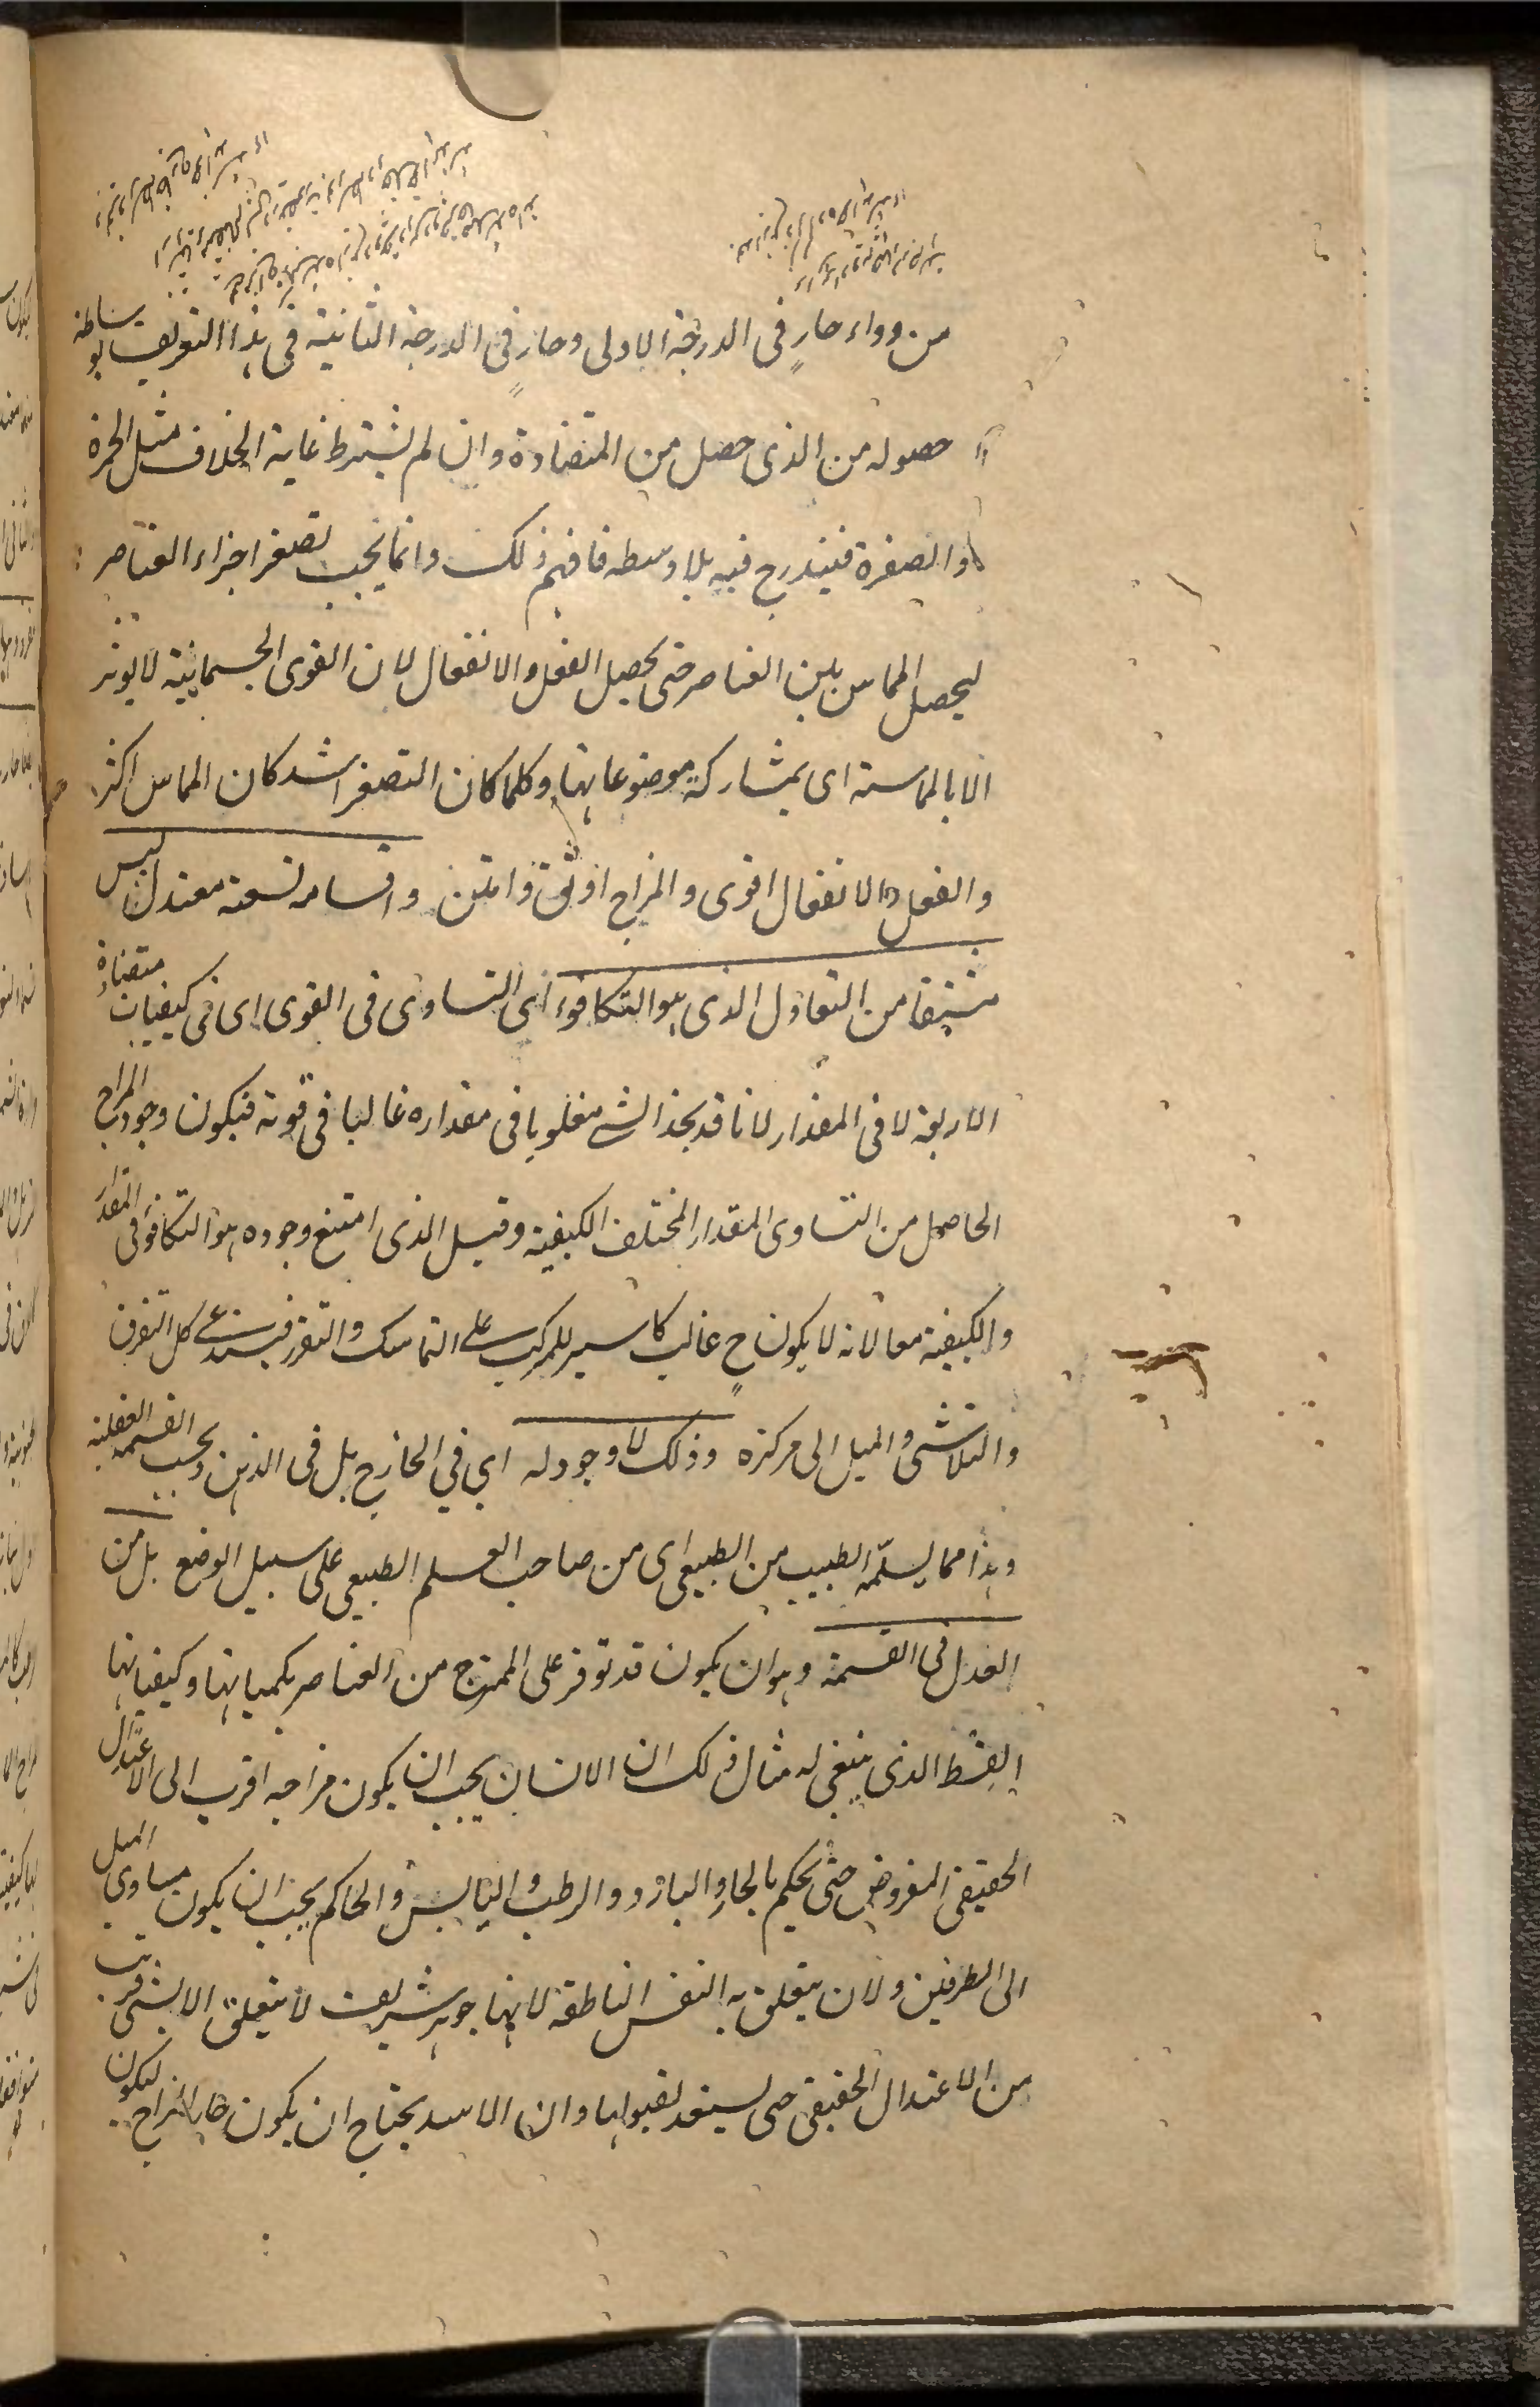 من دواء حارٍ فی الدرجة الاولی وحارٍ فی الدرجة الثانیة فی هذا التعریف بوساطة
حصوله من الذی حصل من المتضادة وان لم یشترط غایة الخلاف مثل الحمرة
والصفرة فیندرج فیه بلا وسطه فافهم ذلک وانما یجب تصغر اجزاء العناصر
لیحصل التماس بین العناصر حتی یحصل الفعل والانفعال لان القوی الجسمانیة لا یوثر
الا بالمماسة ای بمشارکة موضوعاتها وکلما کان التصغر اشد کان التماس اکثر
والفعل والانفعال اقوی والمزاج اوثق وامتن واقسامه تسعة معتدل لیس
مشتقا من التعادل الذی هو التکافوء ای التساوی فی القوی ای فی کیفیات متضادة
الاربعة لا فی المقدار لانا قد نجد الشی مغلوبا فی مقداره غالبا فی قوته فیکون وجود المزاج
الحاصل من التساوی المقدار المختلف الکیفیة وقیل الذی امتنع وجوده هو التکافوء فی المقدار
والکیفیة معا لانه لا یکون ح غالب کاسر للمرکب علی التماسک والتقرر فیستدعی کل التفرق
والتلاشی والمیل الی مرکزه وذلک لا وجود له ای فی الخارج بل فی الذهن وبحسب القسمة العقلیة
وهذا مما یسلّمه الطبیب من الطبیعی ای من صاحب العلم الطبیعی علی سبیل الوضع بل من
العدل فی القسمة وهو ان یکون قد توفر علی الممتزج من العناصر بکمیاتها وکیفیاتها
القسط الذی ینبغی له مثال ذلک ان الانسان یجب ان یکون مزاجه اقرب الی الاعتدال
الحقیقی المفروض حتی یحکم بالحار والبارد والرطب والیابس والحاکم یجب ان یکون مساوی المیل
الی الطرفین ولان یتعلق به النفس الناطقة لانها جوهر شریف لا یتعلق الا بشی قریب
من الاعتدال الحقیقی حتی یستعد لقبولها وان الاسد یحتاج ان یکون حار المزاج لیکون